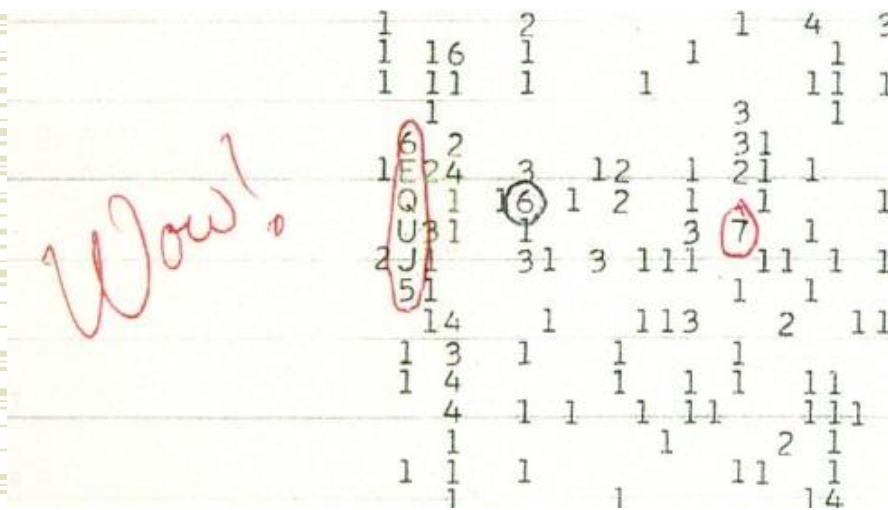 1 2 1 4 3
1 16 1 1 1
1 11 1 1 11 1
1 3 1
6 2 31
1 E24 3 12 1 21 1
Wow!
Q 1 16 1 2 1 1 1
U31 1 3 7 1
2 J1 31 3 111 11 1 1
51 1 1
14 1 113 2 11
1 3 1 1 1
1 4 1 1 1 11
4 1 1 1 11 111
1 1 2 1
1 1 1 11 1
1 1 14